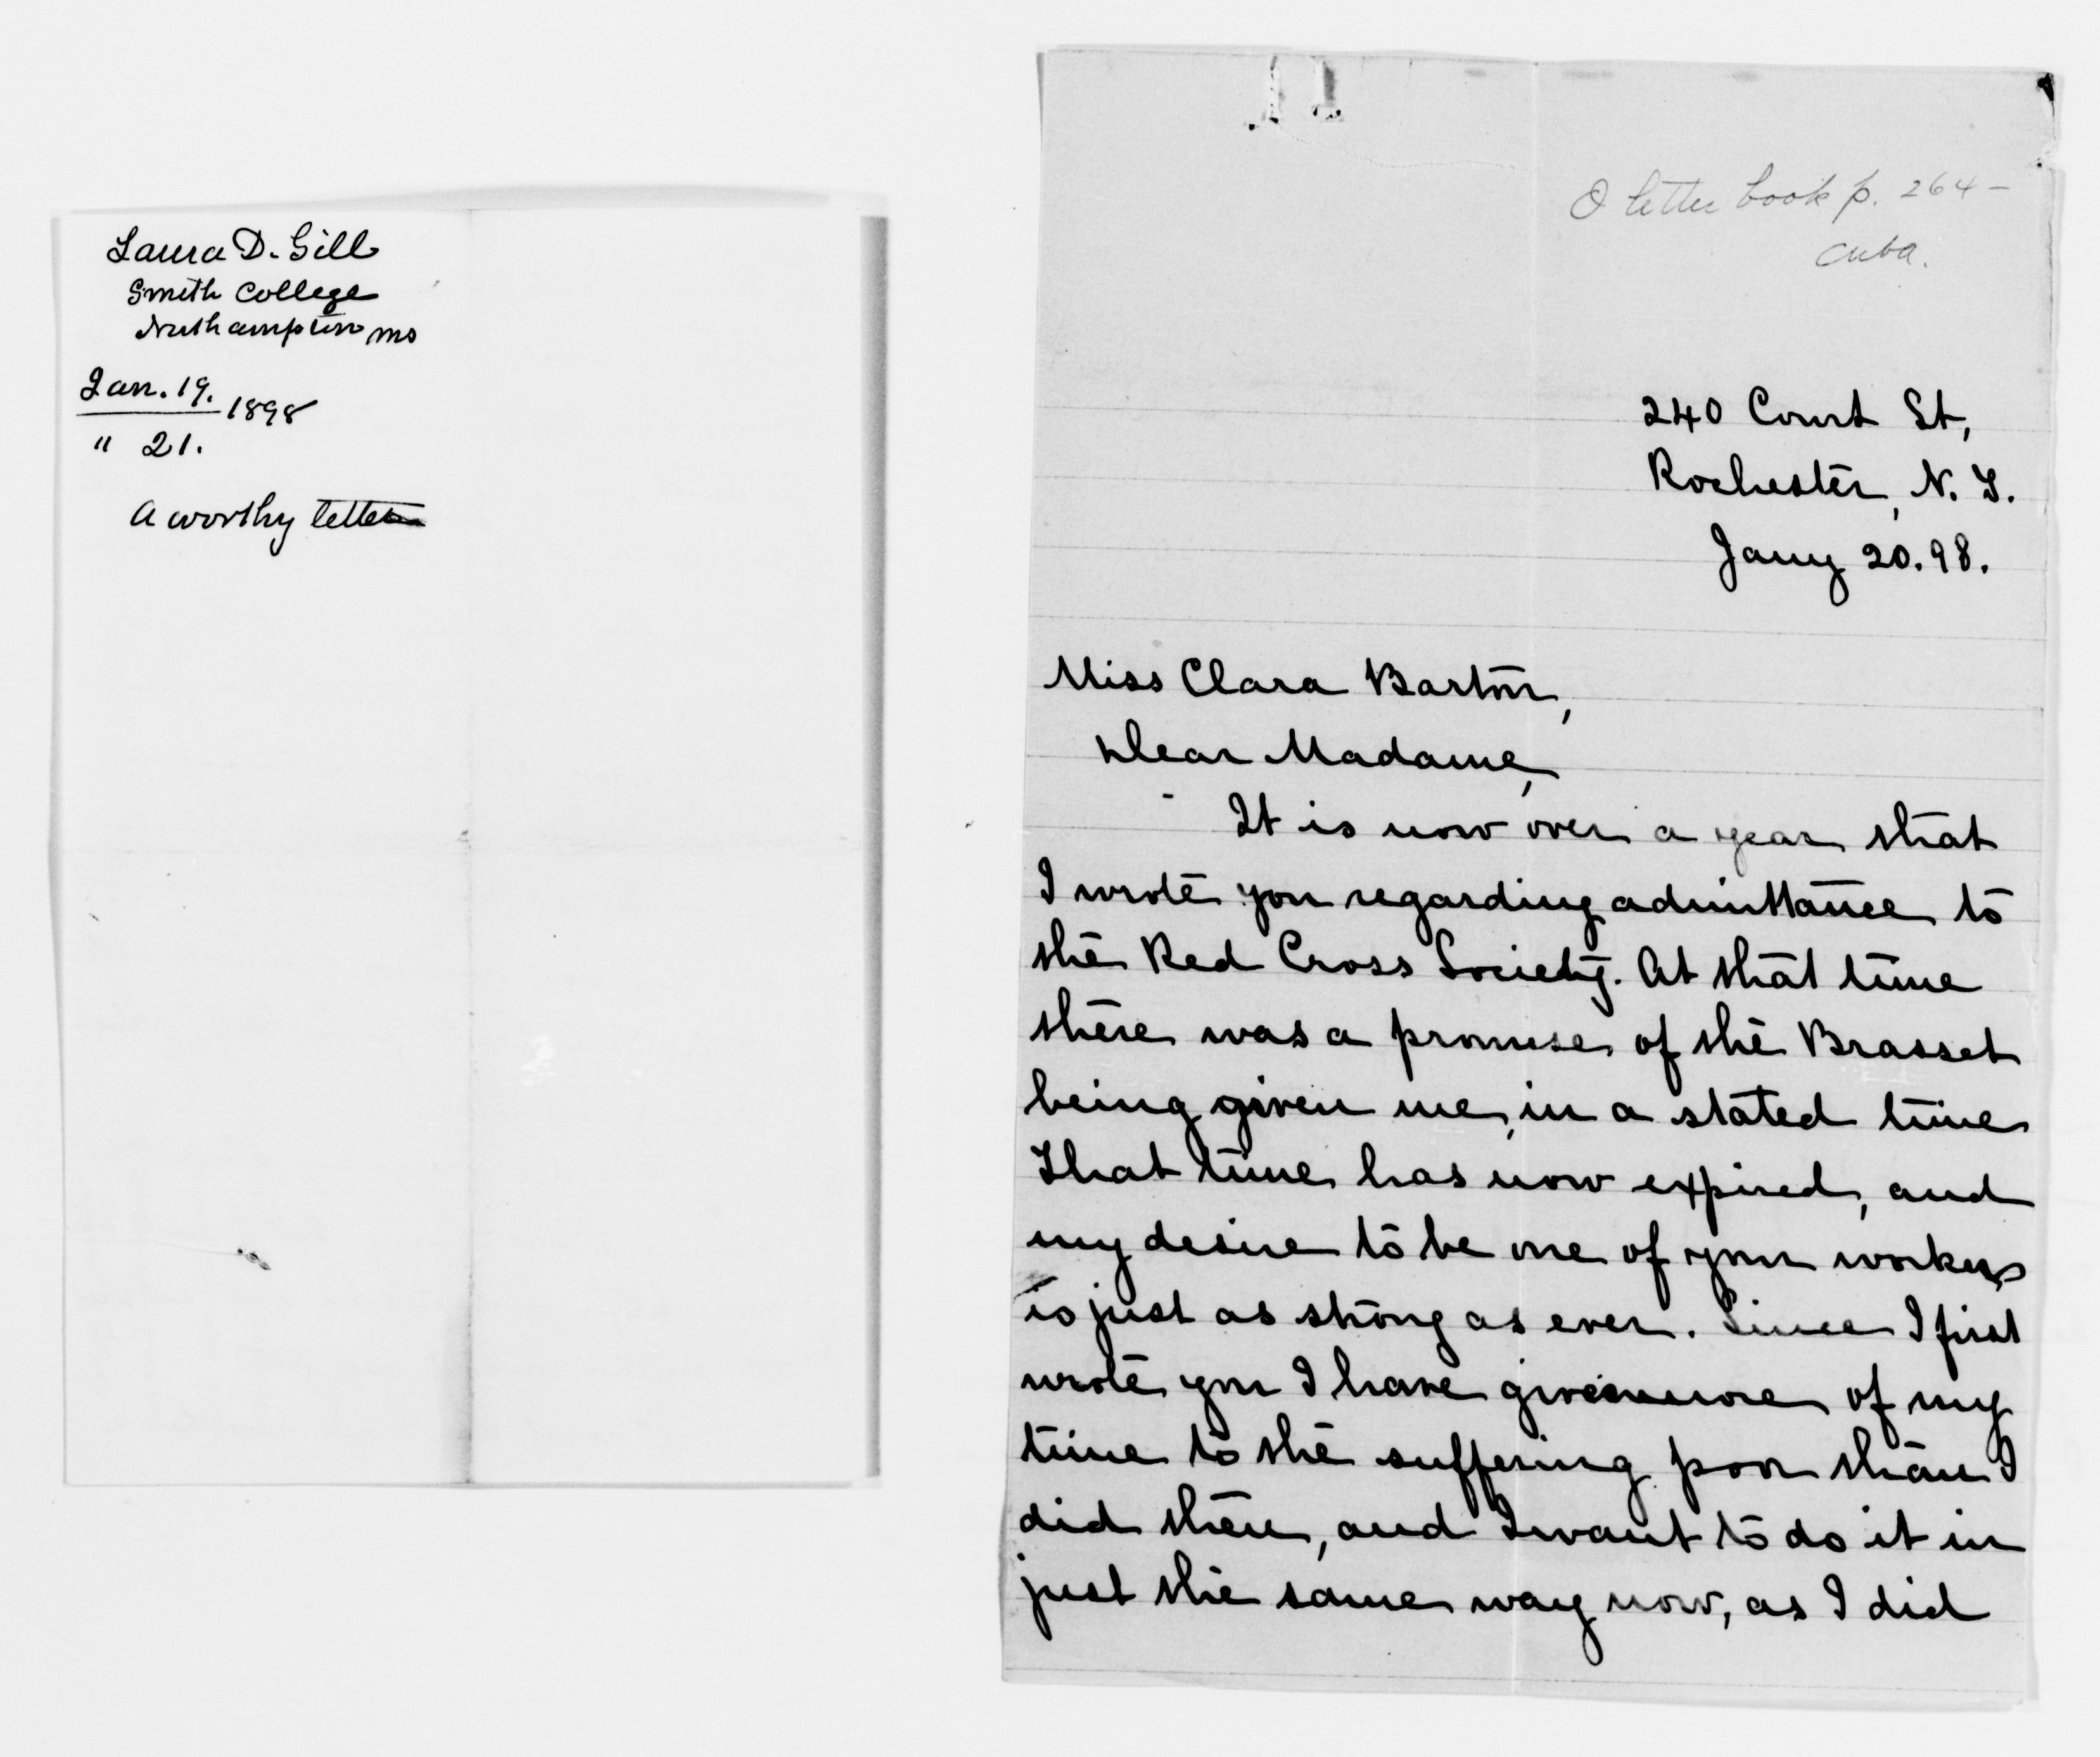 Laura D. Gill
Smith College
Northampton Ms
Jan. 19. 1898
" 21.
A worthy letter
O letter book p. 264 –
Cuba.
240 Court St,
Rochester, N. Y.
Jany 20. 98.
Miss Clara Barton,
Dear Madame,
It is now over a year that
I wrote you regarding admittance to
the Red Cross Society. At that time
there was a promise of the Brasset
being given me, in a stated time
That time has now expired, and
my desire to be one of your workers
is just as strong as ever. Since I first
wrote you I have given more of my
time to the suffering poor than I
did then, and I want to do it in
just the same way now, as I did